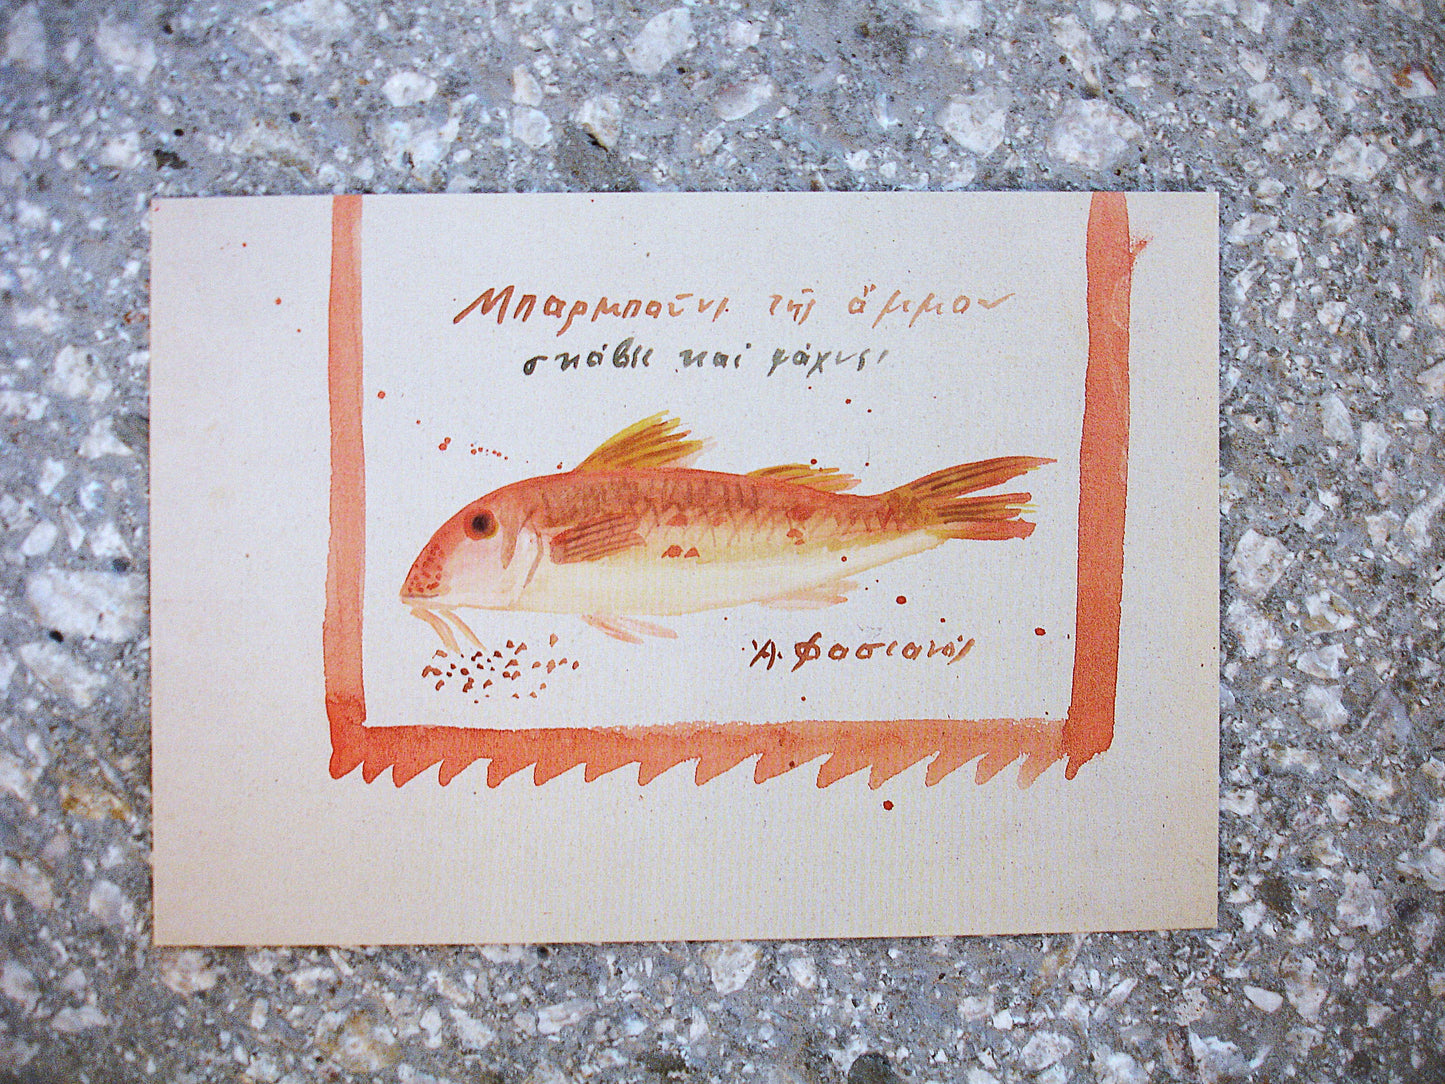 Μπαρμποῦνι τῆς ἄμμου
σκάβει καί ψάχνει
Ἀ. Φασιανός